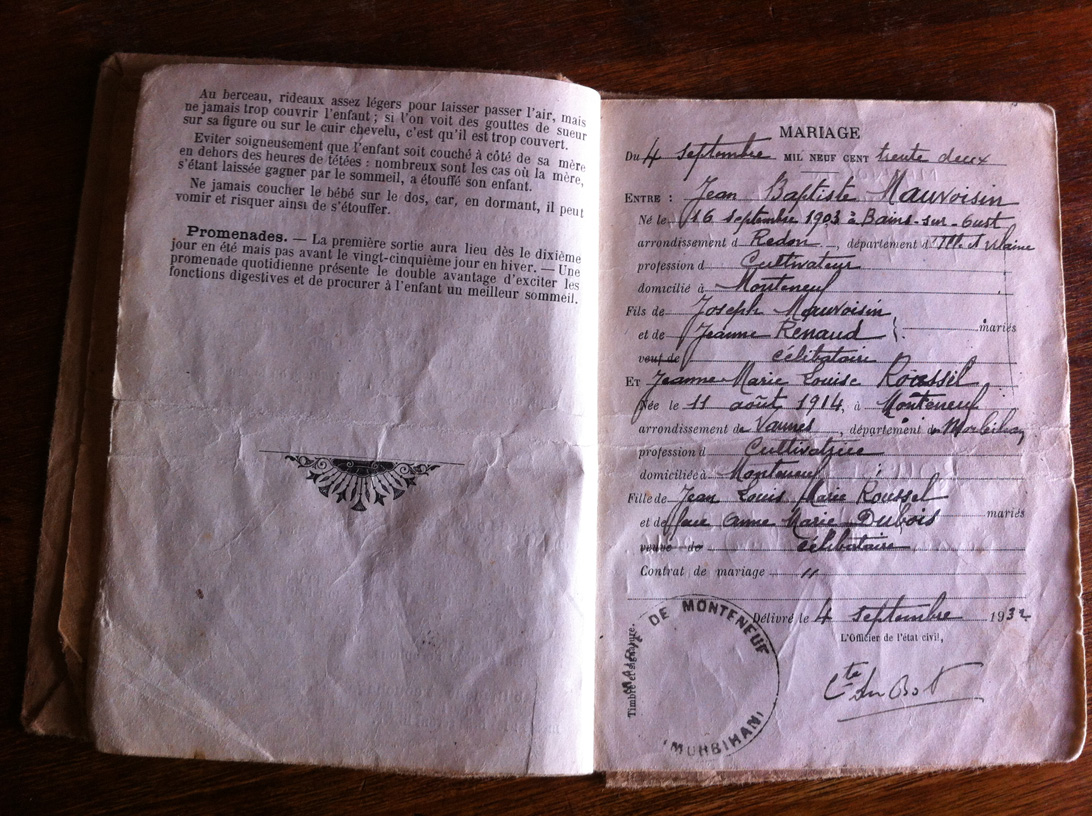 Au berceau, rideaux assez légers pour laisser passer l'air, mais
ne jamais trop couvrir l'enfant ; si l'on voit des gouttes de sueur
sur sa figure ou sur le cuir chevelu, c'est qu'il est trop couvert.
Eviter soigneusement que l'enfant soit couché à côté de sa mère
en dehors des heures de tétées : nombreux sont les cas où la mère,
s'étant laissée gagner par le sommeil, a étouffé son enfant.
Ne jamais coucher le bébé sur le dos, car, en dormant, il peut
vomir et risquer ainsi de s'étouffer.
Promenades. — La première sortie aura lieu dès le dixième
jour en été mais pas avant le vingt-cinquième jour en hiver. — Une
promenade quotidienne présente le double avantage d'exciter les
fonctions digestives et de procurer à l'enfant un meilleur sommeil.
MARIAGE
Du 4 septembre MIL NEUF CENT trente deux
ENTRE : Jean Baptiste Mauvoisin
Né le 16 septembre 1903 à Bains-sur-Oust
arrondissement d Redon, département d'Ille et Vilaine
profession d Cultivateur
domicilié à Monteneuf
Fils de Joseph Mauvoisin
et de Jeanne Renaud mariés
veuf de célibataire
ET Jeanne Marie Louise Roussel
Née le 11 août 1914, à Monteneuf
arrondissement de Vannes, département du Morbihan
profession d Cultivatrice
domiciliée à Monteneuf
Fille de Jean Louis Marie Roussel
et de Anne Marie Dubois mariés
veuve de célibataire
Contrat de mariage "
Délivré le 4 septembre 1932
L'Officier de l'état civil,
Cte du Bot
Timbre et signature.
MAIRIE DE MONTENEUF
(MORBIHAN)